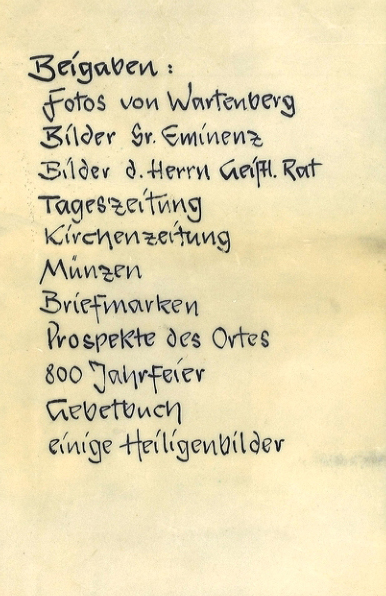 Beigaben:
Fotos von Wartenberg
Bilder Sr. Eminenz
Bilder d. Herrn Geistl. Rat
Tageszeitung
Kirchenzeitung
Münzen
Briefmarken
Prospekte des Ortes
800 Jahrfeier
Gebetbuch
einige Heiligenbilder